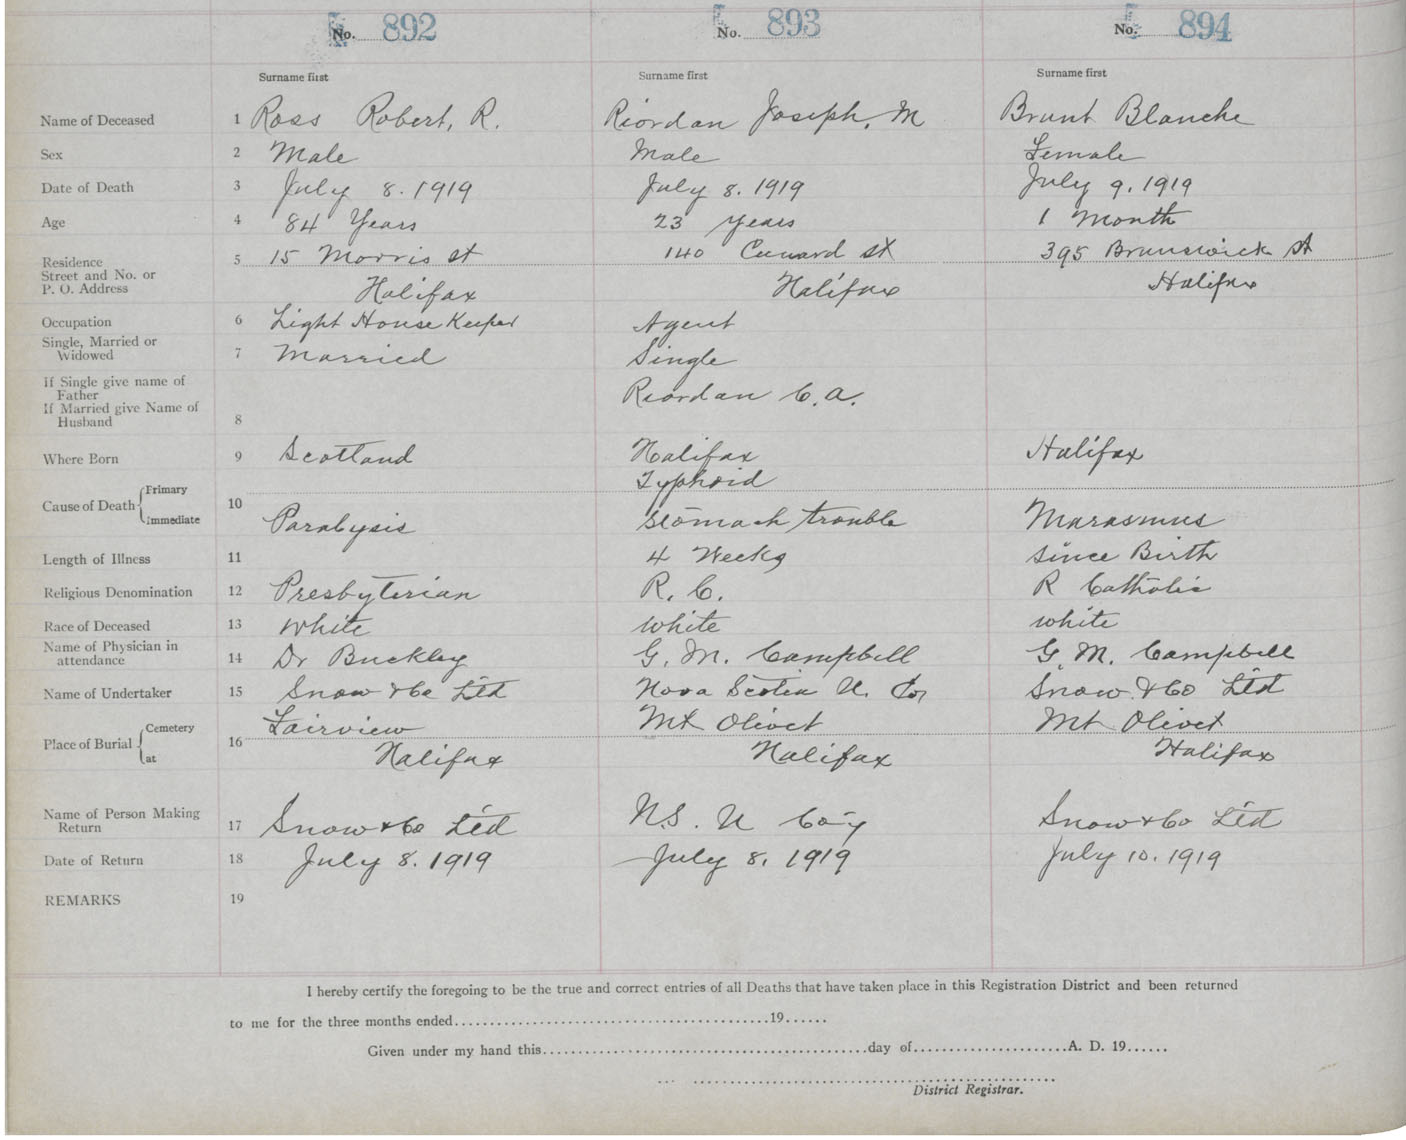 No. 892 No. 893 No. 894
Surname first Surname first Surname first
Name of Deceased 1 Ross Robert, R. Riordan Joseph, M Brunt Blanche
Sex 2 Male Male Female
Date of Death 3 July 8. 1919 July 8. 1919 July 9. 1919
Age 4 84 Years 23 years 1 Month
Residence 5 15 Morris st 140 Cunard st 395 Brunswick st
Street and No. or
P. O. Address Halifax Halifax Halifax
Occupation 6 Light House Keeper Agent
Single, Married or
Widowed 7 Married Single
If Single give name of
Father Riordan C. A.
If Married give Name of
Husband 8
Where Born 9 Scotland Halifax Halifax
Cause of Death Primary Typhoid
10
Immediate Paralysis Stomach trouble Marasmus
Length of Illness 11 4 Weeks since Birth
Religious Denomination 12 Presbyterian R. C. R Catholic
Race of Deceased 13 White white white
Name of Physician in
attendance 14 Dr Buckley G. M. Campbell G. M. Campbell
Name of Undertaker 15 Snow & Co Ltd Nova Scotia U. Co, Snow & Co Ltd
Place of Burial Cemetery Fairview Mt Olivet Mt Olivet
16
at Halifax Halifax Halifax
Name of Person Making
Return 17 Snow & Co Ltd N.S. U Co'y Snow & Co Ltd
Date of Return 18 July 8. 1919 July 8, 1919 July 10. 1919
REMARKS 19
I hereby certify the foregoing to be the true and correct entries of all Deaths that have taken place in this Registration District and been returned
to me for the three months ended..........19......
Given under my hand this..........day of..........A. D. 19......
District Registrar.